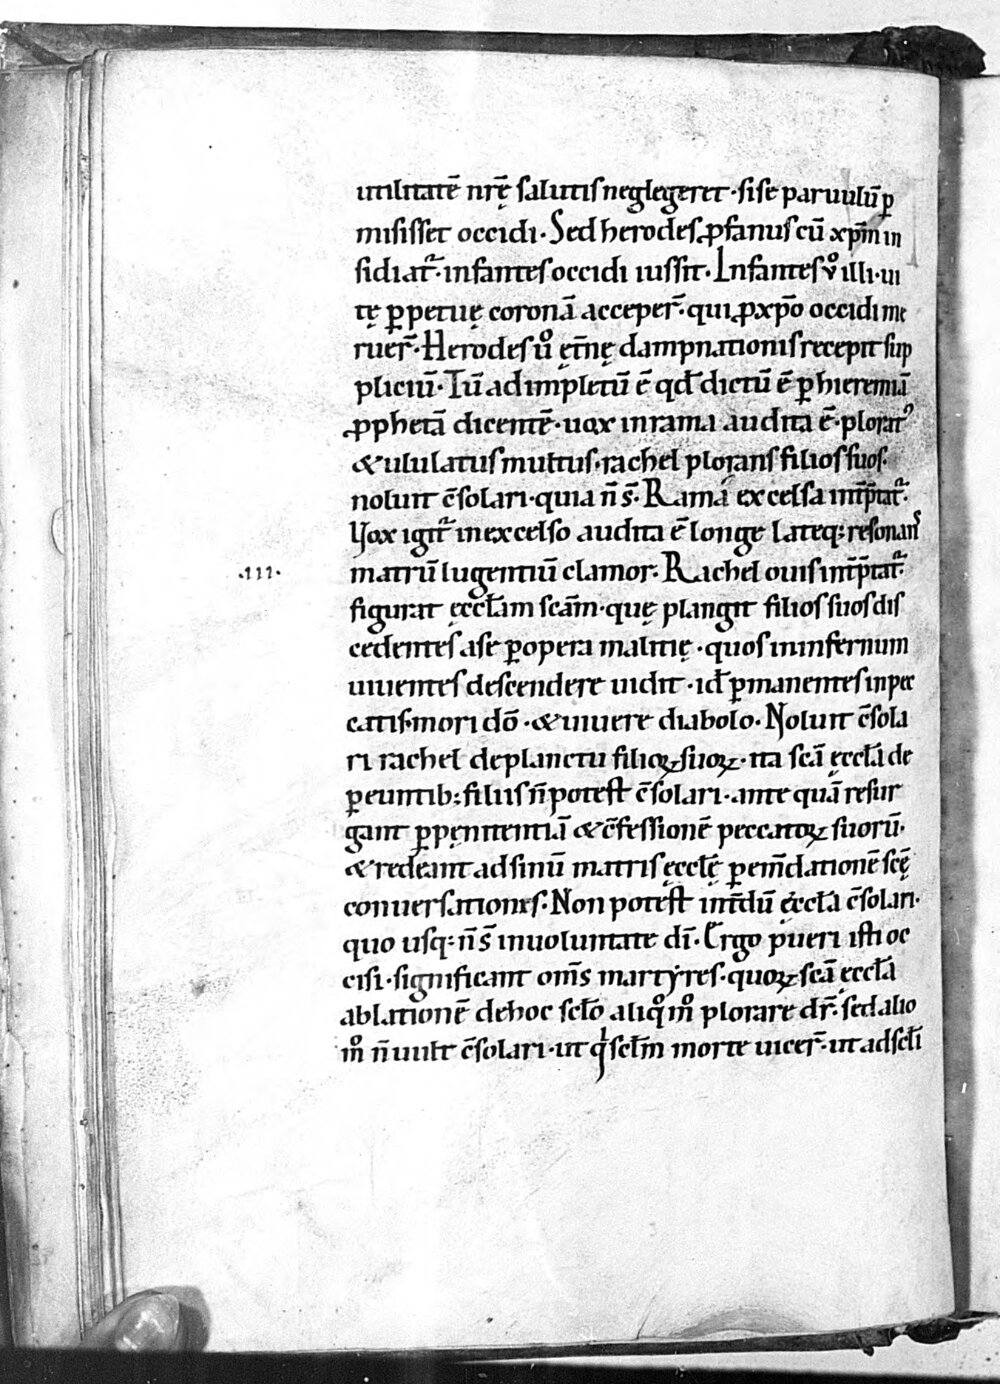 utilitatē nr̄ę salutis neglegeret · si se paruulū ꝑ
misisset occidi · Sed herodes ꝓfanus cū xp̄m in
sidiat᷑ · infantes occidi iussit · Infantes v̊ illi · ui
tę ꝑpetuę coronā acceper̄ · qui ꝓ xp̄o occidi me
ruer̄ · Herodes ů ęt̄nę dampnationis recepit sup
pliciū · Tū adimpletū ē qd̄ dictū ē ꝑ hieremiā
ꝓphetā dicentē · uox in rama audita ē · plorat᷒
& ululatus multus · rachel plorans filios suos ·
noluit c̄solari · quia n̄ s̄ · Rama excelsa int̄p̄tat᷑ ·
Vox igit᷑ in excelso audita ē longe lateq; resonans
·III· matrū lugentiū clamor · Rachel ouis int̄p̄tat᷑ ·
figurat ęccl̄am sc̄am · quę plangit filios suos dis
cedentes a se ꝑ opera malitię · quos in infernum
uiuentes descendere uidit · id̄ ꝑmanentes in pec
catis · mori dō · & uiuere diabolo · Noluit c̄sola
ri rachel de planctu filioꝝ suoꝝ · ita sc̄a ęccl̄a de
ꝑeuntib; filiis n̄ potest c̄solari · ante quā resur
gant ꝑ pęnitentiā & c̄fessionē peccatoꝝ suorū ·
& redeant ad sinū matris ęccl̄ę ꝑ em̄dationē sc̄ę
conuersationis · Non potest int̄dū ęccl̄a c̄solari ·
quo usq; n̄ s̄ in uoluntate dī · Ergo pueri isti oc
cisi · significant om̄s martyres · quoꝝ sc̄a ęccl̄a
ablationē de hoc scl̄o aliq̊ m̊ plorare dr̄ · sed alio
m̊ n̄ uult c̄solari · ut qͥ scl̄m morte uicer̄ · ut ad scl̄i